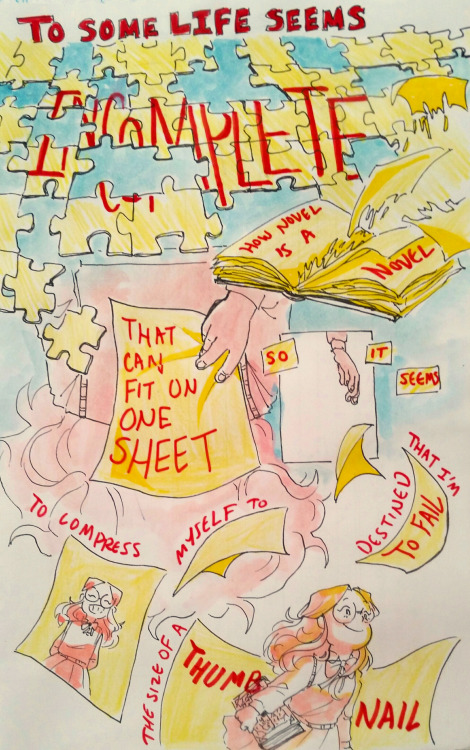 TO SOME LIFE SEEMS
INCOMPLETE
HOW NOVEL
IS A
NOVEL
THAT
CAN
FIT ON
ONE
SHEET
SO
IT
SEEMS
THAT I'M
DESTINED
TO FAIL
TO COMPRESS
MYSELF TO
THE SIZE OF A
THUMB
NAIL